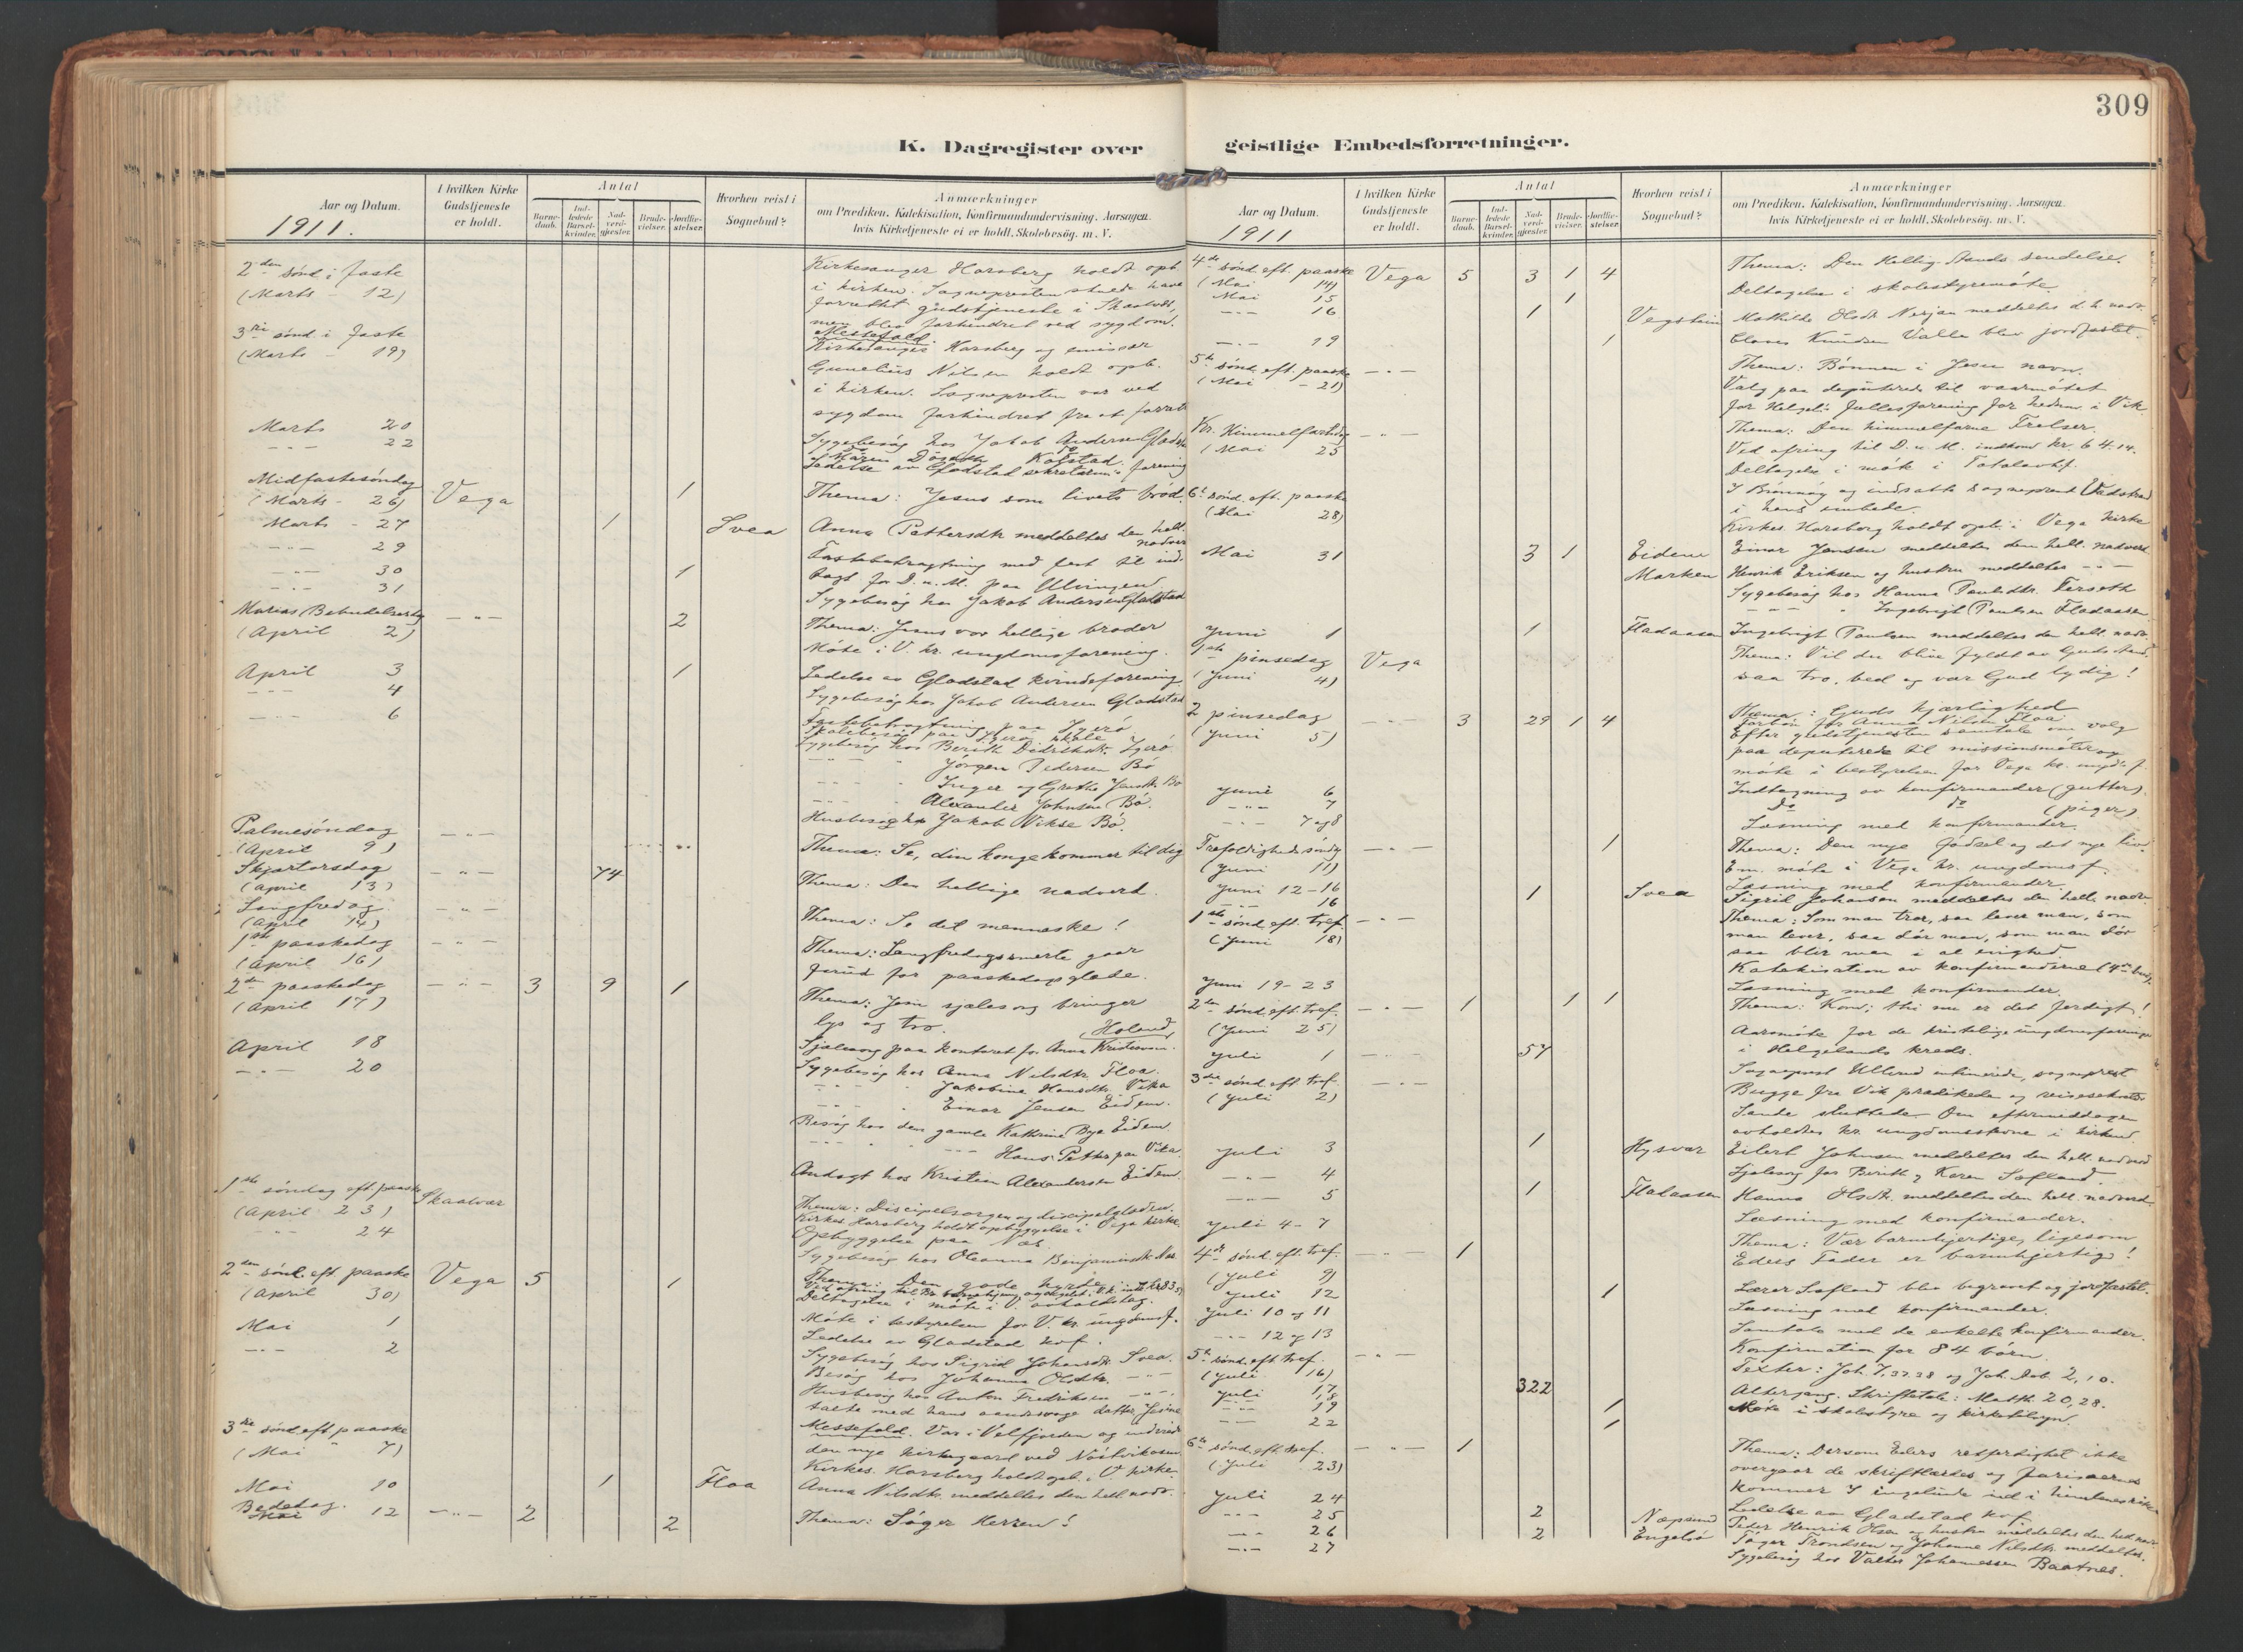 309
K. Dagregister over geistlige Embedsforretninger.
Aar og Datum.
1911.
I hvilken Kirke Gudstjeneste er holdt.
Antal
Barne-daab.
Ind-ledede Barsel-kvinder.
Nad-verd-gjester.
Brude-vielser.
Jordfæ-stelser.
Hvorhen reist i Sognebud?
Anmærkninger
om Prædiken, Katekisation, Konfirmandundervisning, Aarsagen,
hvis Kirketjeneste ei er holdt, Skolebesög, m. V.
2den sønd i faste
(Marts - 12)
Kirkesanger Horsberg holdt opb.
i kirken. Sognepresten skulde have
forrettet gudstjeneste i Skaalvær,
men blev forhindret ved sygdom.
3die sønd. i faste
(Marts - 19)
Messefald.
Kirkesanger Horsberg og emissær
Gunelius Nilsen holdt opb.
i kirken. Sognepresten var ved
sygdom forhindret fra at forrette
Marts 20
Sygebesøg hos Jakob Andersen Gladstad
-"- 22
Ledelse av Gladstad forening
Midfastesøndag
(Marts - 26) Vega 1
Thema: Jesus som livets brød.
Marts - 27 1 Svea
Anna Pettersdtr meddeltes den hell. nadver
-"- 29
Fastebetragtning med fest til ind-
-"- 30 1
tægt for D. u. M. paa Ulvingen
-"- 31
Sygebesøg hos Jakob Andersen Gladstad
Marias Bebudelsesdag
(April 2) -"- 2
Thema: Jesus vor hellige broder
Møte i V. kr. ungdomsforening.
April 3 1
Ledelse av Gladstad kvindeforening
-"- 4
Sygebesøg hos Jakob Andersen Gladstad
-"- 6
Fastebetragtning paa Igerø
Skolebesøg paa Igerø skole
Sygebesøg hos Berith Didriksdtr. Igerø
-"- Jørgen Pedersen Bø
-"- Inger og Grethe Jensdtr. Bø
-"- Alexander Johnsen Bø.
Husbesøg hos Jakob Wikse Bø.
Palmesøndag
(April 9) -"-
Thema: Se, din konge kommer til dig
Skjærtorsdag
(April 13) -"- 74
Thema: Den hellige nadverd.
Langfredag
(April 14) -"-
Thema: Se det menneske!
1ste paaskedag
(April 16) -"-
Thema: Langfredagssmerte gaar
forud for paaskedagsglæde.
2den paaskedag
(April 17) -"- 3 9 1
Thema: Jesu sjælesorg bringer
lys og tro.
April 18
Sjælesorg paa kontoret for Anna Kristensen Holand
-"- 20
Sygebesøg hos Anna Nilsdtr. Floa.
-"- Jakobine Hansdtr. Vika
-"- Einar Jensen Eidem.
Besøg hos den gamle Kathrine Bye Eidem.
-"- Hans Petter paa Vika.
Andagt hos Kristian Alexandersen Eidem.
1ste søndag eft. paaske
(April 23) Skaalvær
Thema: Discipelsorgen og discipelglæden.
Kirkes. Horsberg holdt opbyggelse i Vega kirke.
-"- 24
Opbyggelse paa Nes.
Sygebesøg hos Oleanna Benjaminsdtr. Nes
2den sønd. eft. paaske
(April 30) Vega 5 1
Thema: Den gode hyrde
Deltagelse i møte i V. avholdslag.
Mai 1
Møte i bestyrelsen for V. kr. ungdomsf.
-"- 2
Ledelse av Gladstad kvf.
Sygebesøg hos Sigrid Johansdtr. Svea.
Besøg hos Johanna Olsdtr. -"-
Husbesøg hos Anton Fredriksen -"-
talte med hans datter Jesine
3die sønd. eft. paaske
(Mai " 7)
Messefald. Var i Velfjorden og indviede
den nye kirkegaard ved Nøstvikosen.
Kirkes. Horsberg holdt opb. i V. kirke.
Mai 10 1 Floa
Anna Nilsdtr. meddeltes den hell. nadv.
Bededag.
Mai 12 -"- 2 2
Thema: Søger Herren!
Aar og Datum.
1911
I hvilken Kirke Gudstjeneste er holdt.
Antal
Barne-daab.
Ind-ledede Barsel-kvinder.
Nad-verd-gjester.
Brude-vielser.
Jordfæ-stelser.
Hvorhen reist i Sognebud?
Anmærkninger
om Prædiken, Katekisation, Konfirmandundervisning, Aarsagen,
hvis Kirketjeneste ei er holdt, Skolebesög, m. V.
4de sønd. eft. paaske
(Mai 14) Vega 5 3 1 4
Thema: Den Hellig-Aands sendelse.
Mai 15 1
Deltagelse i skolestyremøte.
-"- 16 1 Vegstein
Mathilde Olsdtr. meddeltes d. h. nadv.
-"- 19 1
Knudsen Valla blev jordfæstet.
5te sønd. eft. paaske
(Mai - 21) -"-
Thema: Bønnen i Jesu navn.
Valg paa deputerede til vaarmøtet
for Helgel. fællesforening for hedm. i Vik.
Kr. Himmelfartsdag
(Mai 25) -"-
Thema: Den himmelfarne Frelser.
Ved ofring til D. u. M. indkom kr. 64.14.
Deltagelse i møte i Totalavh.f.
6te sønd. eft. paaske
(Mai 28)
I Brønnøy og indsatte sogneprest
i hans embede.
Kirkes. Horsberg holdt opb. i Vega kirke
Mai 31 3 1 Eidem
Einar Jensen meddeltes den hell. nadverd
Marken
Henrik Eriksen og hustru meddeltes -"-
Sygebesøg hos Hanna Paulsdtr. Færseth
-"- Ingebrigt Paulsen Fladaasen
Juni 1 1 Fladaasen
Ingebrigt Paulsen meddeltes den hell. nadv.
1ste pinsedag
(Juni 4) Vega
Thema: Vil du blive fyldt av Guds Aand,
saa tro, bed og vær Gud lydig!
2 pinsedag
(Juni 5) -"- 3 29 1 4
Thema: Guds kjærlighed
Forbøn for Anna Nilsen Floa
Efter gudstjenesten samtale om valg
paa deputerede til missionsmøter og
møte i bestyrelsen for Vega kr. ungd.f.
Juni 6
Indtagning av konfirmander (gutter).
-"- 7
do do (piger).
-"- 7 og 8
Læsning med konfirmander.
Trefoldighedssøndag
(Juni 11) -"- 1
Thema: Den nye fødsel og det nye liv.
Em. møte i Vega kr. ungdomsf.
Juni 12-16
Læsning med konfirmander.
16 1 Svea
Sigrid Johansen meddeltes den hell. nadv.
1ste sønd. eft. tref.
(Juni 18) -"-
Thema: Som man tror, saa lever man, som
man lever, saa dør man, som man dør
saa blir man i al evighed.
Katekisation av konfirmanderne
Juni 19-23
Læsning med konfirmander.
2den sønd. eft. tref.
(Juni 25) -"- 1 1 1
Thema: Kom; thi nu er det færdigt!
Juli 1 -"- 57
Aarsmøte for de kristelige ungdomsforeninger
i Helgelands kreds.
3die sønd. eft. tref.
(Juli 2) -"-
Sogneprest Ullerud intimerede, sogneprest
Bugge fra Vik prædikede og reisesekretær
Sande sluttede. Om eftermiddagen
avholdtes kr. ungdomsstevne i kirken.
Juli 3 1 Hysvær
Eilert Johnsen meddeltes den hell. nadverd
-"- 4
Sjælesorg for Berith og Karen Søfland.
-"- 5 1 Fladaasen
Hanna Olsdtr. meddeltes den hell. nadverd.
Juli 4-7
Læsning med konfirmander.
4de sønd. eft. tref.
(Juli 9) -"- 1
Thema: Vær barmhjertige, ligesom
Eders Fader er barmhjertig!
Juli 12 1
Lærer Søfland blev begravet og jordfæstet.
Juli 10 og 11
Læsning med konfirmander.
-"- 12 og 13
Samtale med de enkelte konfirmander.
5te sønd. eft. tref.
(Juli 16) -"-
Konfirmation for 84 børn.
Texter: Joh. 7,37.38 og Joh. Aab. 2,10.
Juli 17 322
Altergang. Skriftetale: Matth. 20,28.
18
-"- 19 1
Møte i skolestyre og kirketilsyn.
-"- 22 1
6te sønd. eft. tref.
(Juli 23) -"- 1
Thema: Dersom Eders retfærdighet ikke
overgaar de skriftlærdes og farisæernes
kommer I ingenlunde ind i himlenes rike
Juli 24
Ledelse av Gladstad kvf.
-"- 25 2 Nepsund
Peder Henrik Olsen og hustru meddeltes den hell nadv.
-"- 26 2 Engelsø
Tøger Trondsen og Johanne Nilsdtr. meddeltes.
-"- 27
Sygebesøg hos Valter Johannessen Baatnes.